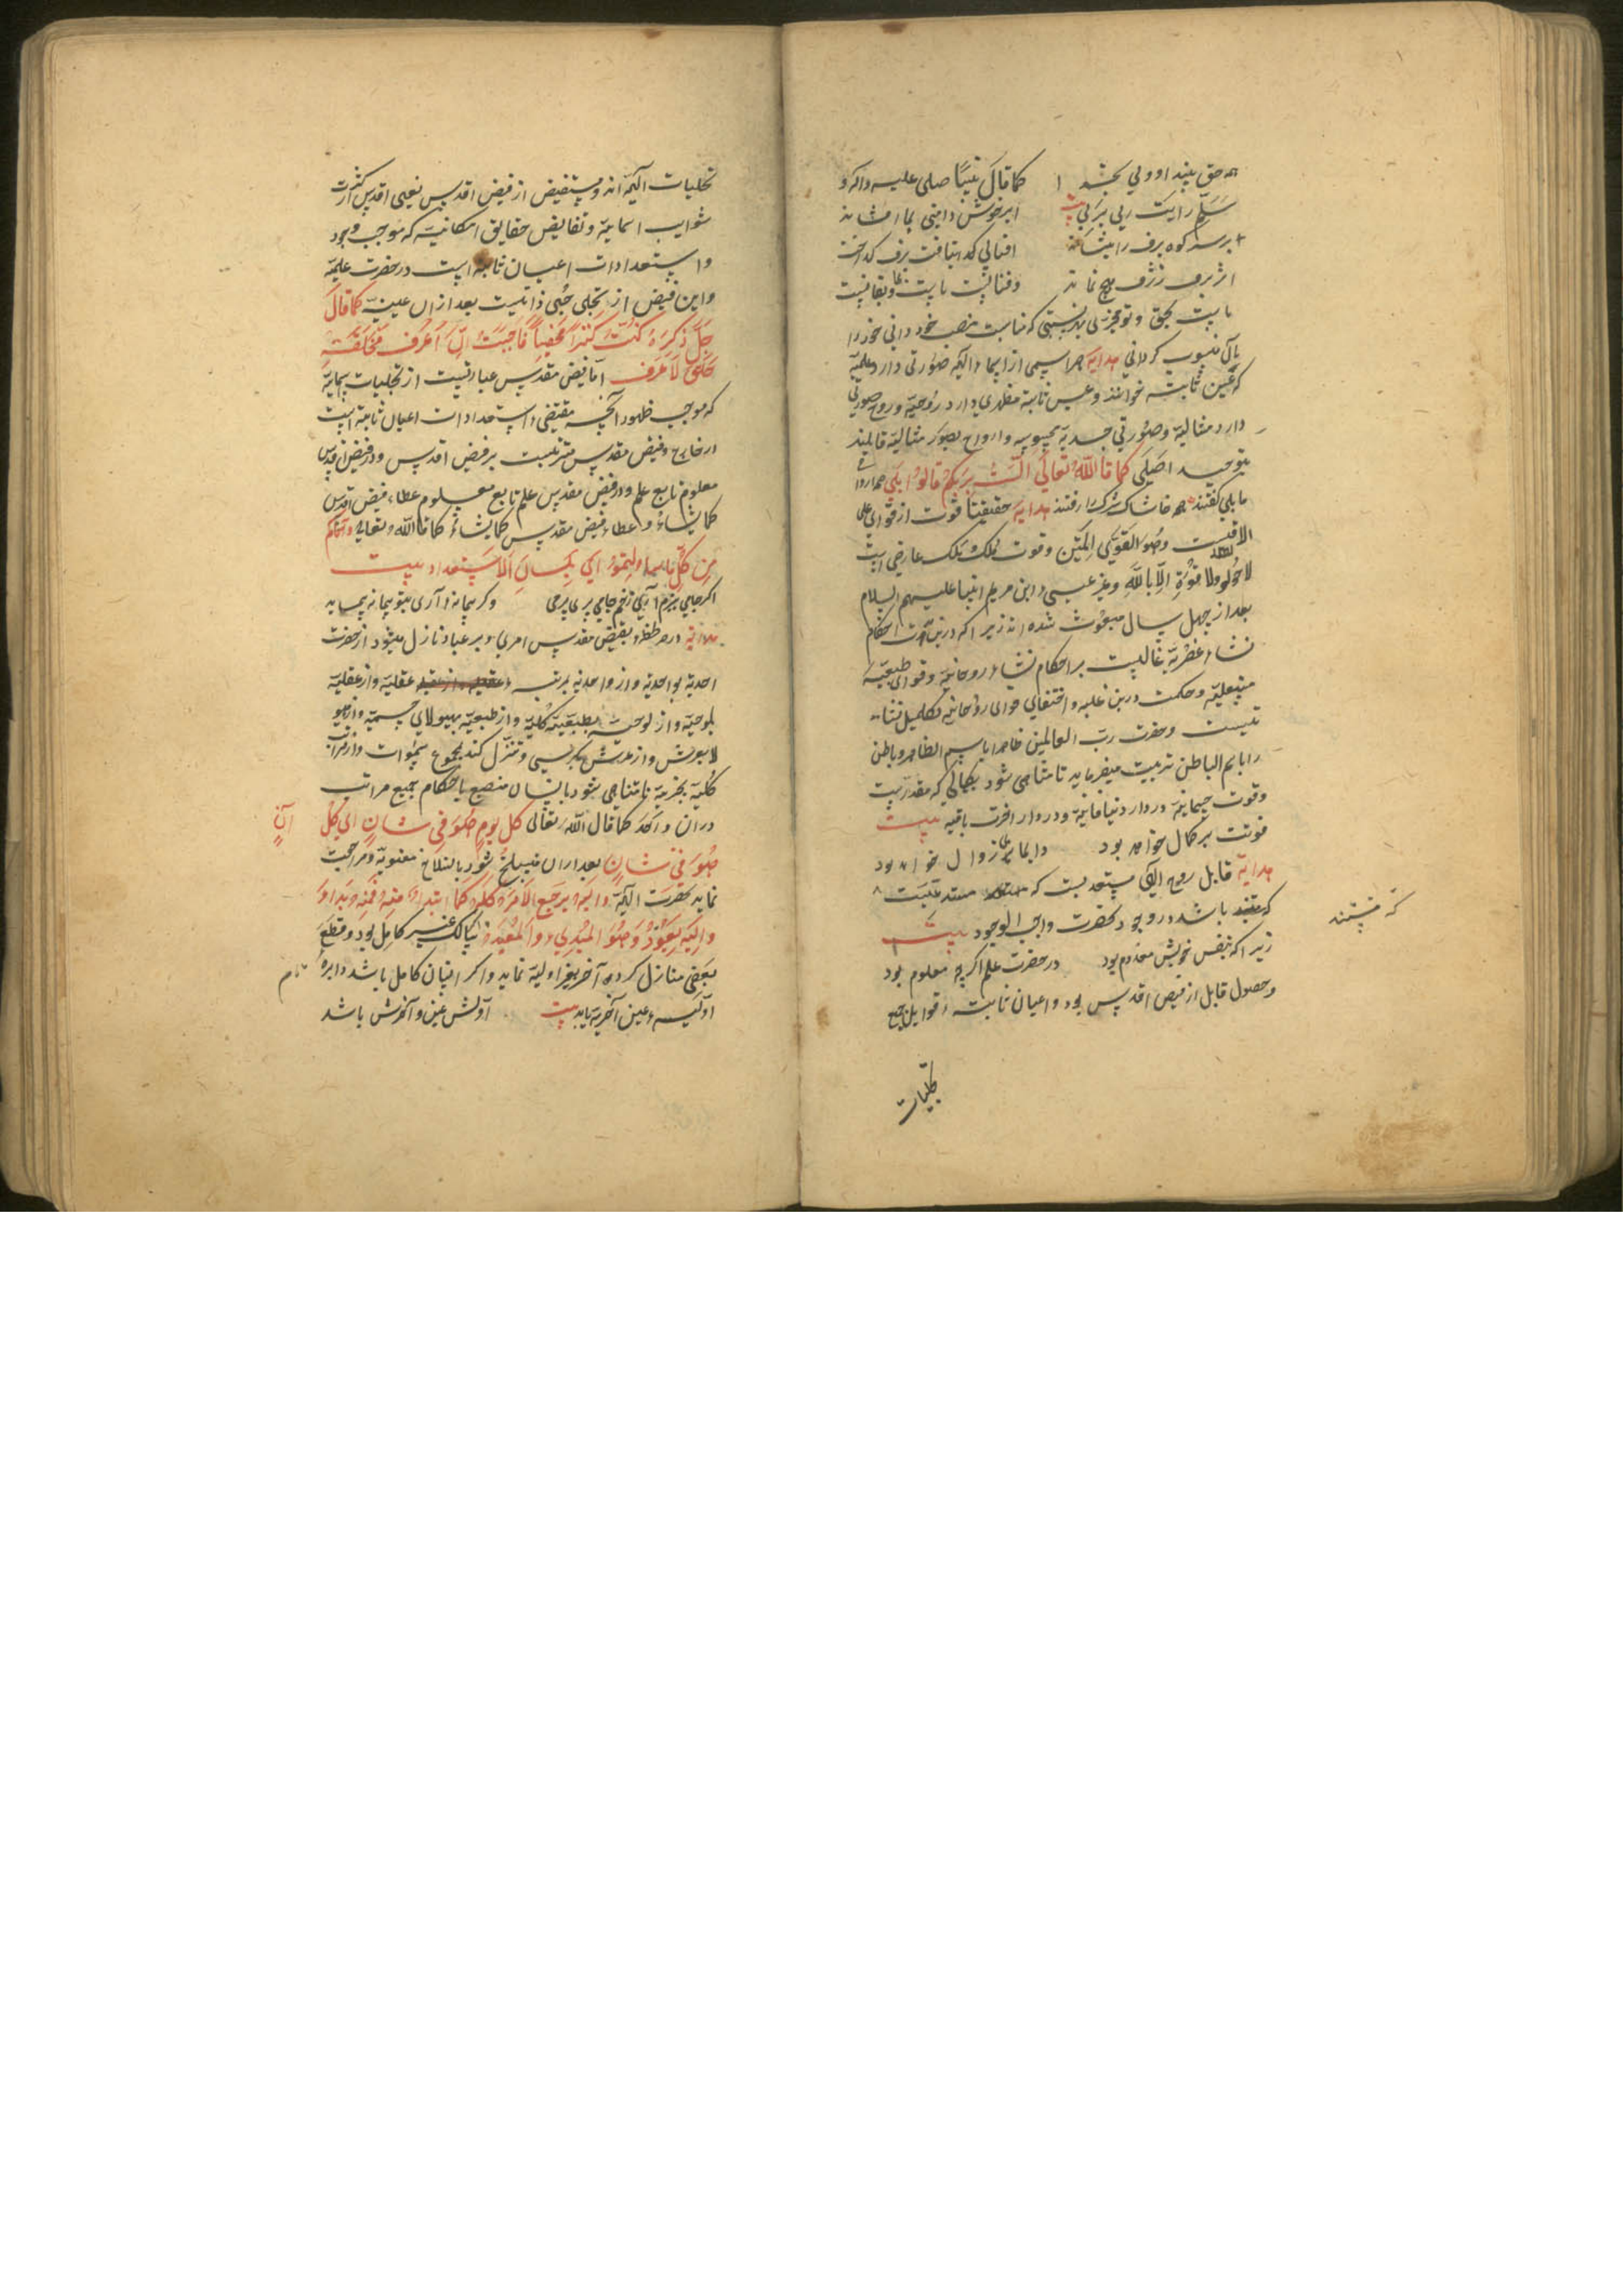 همه حق بیند او ولی بحشد کما قال نبینا صلی علیه واله و
سلم رایت ربی بربی بیت ابر خوش دامنی بما افشاند
بر سر کوه برف را بنشاند افتابی که بتافت برف گداخت
اثر برف ژرف هیچ نماند و فنا نیست تا بیت و بقا نیست
تا بیت بحق و تو هر نسبتی که مناسب منصب خود دانی خود را
بآن منسوب گردانی هدایة هر اسمی از اسماء الهیه صورتی دارد علمیه
که عین ثابته خوانند و عین ثابته مظهری دارد روحیة و روح صورتی
دارد مثالیة و صورتی جسدیة محسوسه و ارواح بصور مثالیة قایلند
بتوحید اصلی کما قال الله تعالی الست بربکم قالوا بلی
ما بلی گفتند همه خاشاک شرک را رفتند هدایة حقیقتا قوت از قوای علی
الاقیست وهو القوی المتین و قوت ملک و ملک عارضی است
لا حول ولا قوة الا بالله و غیر عیسی ابن مریم انبیا علیهم السلام
بعد از چهل سال مبعوث شده اند زیرا که درین مدت احکام
نشاء عنصریة غالبست بر احکام نشاء روحانیة و قوای طبیعیة
و حکمت درین غلبه و اختفای قوای روحانیه تکمیل نشاء
تیست و حضرت رب العالمین ظاهر را باسم الظاهر و باطن
را باسم الباطن تربیت میفرماید تا متناهی شود بکمالی که مقدرست
و قوت جسمانیة در دار دنیا فانیة و در دار اخرت باقیه بیت
قوتت بر کمال خواهد بود دایما بی زوال خواهد بود
هدایة قابل روح الهی مستعدیست که
که باشد در وجود بحضرت واجب الوجود بیت
که مستند
زیرا که بنفس خویش معدوم بود در حضرت علم اگرچه معلوم بود
و حصول قابل از فیض اقدس بود و اعیان ثابته قوابل جمیع
تجلیات
تجلیات الهیه اند و مستفیض از فیض اقدس یعنی اقدس از کثرت
شوایب اسمائیة و نقایض حقایق امکانیه که موجب وجود
و استعدادات اعیان ثابته است در حضرت علمیه
و این فیض از تجلی حبی ذاتیست بعد از ان عینیه کما قال
جل ذکره کنت کنزا مخفیا فاحببت ان اعرف فخلقت
خلق لاعرف اما فیض مقدس عبارتیست از تجلیات اسمائیه
که موجب ظهور آنچه مقتضی استعدادات اعیان ثابته است
در خارج و فیض مقدس مترتبست بر فیض اقدس و در فیض اقدس
معلوم تابع علم و در فیض مقدس علم تابع معلوم عطاء فیض اقدس
کما یشاء و اعطاء فیض مقدس کما یشاء کما قال الله تعالی واتیکم
من کل ما سالتموه ای بلسان الاستعداد بیت
اگر جامی بزم آری زخم جامی پری بری وگر پیمانه آری بتو پیمانه پیماید
هدایة در هر لحظه بفیض مقدس امری بر عباد نازل میشود از حضرت
احدیه بواحدیه و از واحدیه بمرتبه عقلیه و از عقلیة
بلوحیة و از لوحیه بطبیعیة کلیة و از طبیعیة بهیولای جسمیة و از هیو
لا بعرش و از عرش بکرسی و تنزل کند بمجموع سموات و از مراتب
کلیة بجزئیة تا متناهی شود بانسان منصبغ باحکام جمیع مراتب
در ان واحد کما قال الله تعالی کل یوم هو فی شان ای کل آن
هو فی شان بعد از ان منسلخ شود بانسلاخ معنویة و مراجعت
نماید بحضرت الهیة والیه یرجع الامر کله کما ابتداء منه فمنه بداء
والیه یعود وهو المبدی والمعید ان سالک غیر کامل بود و قطع
بعضی منازل کرده آخر بغیر اولیة نماید و اگر انسان کامل باشد دایره تمام
اولیه عین آخریه یابد بیت اولش عین و آخرش باشد